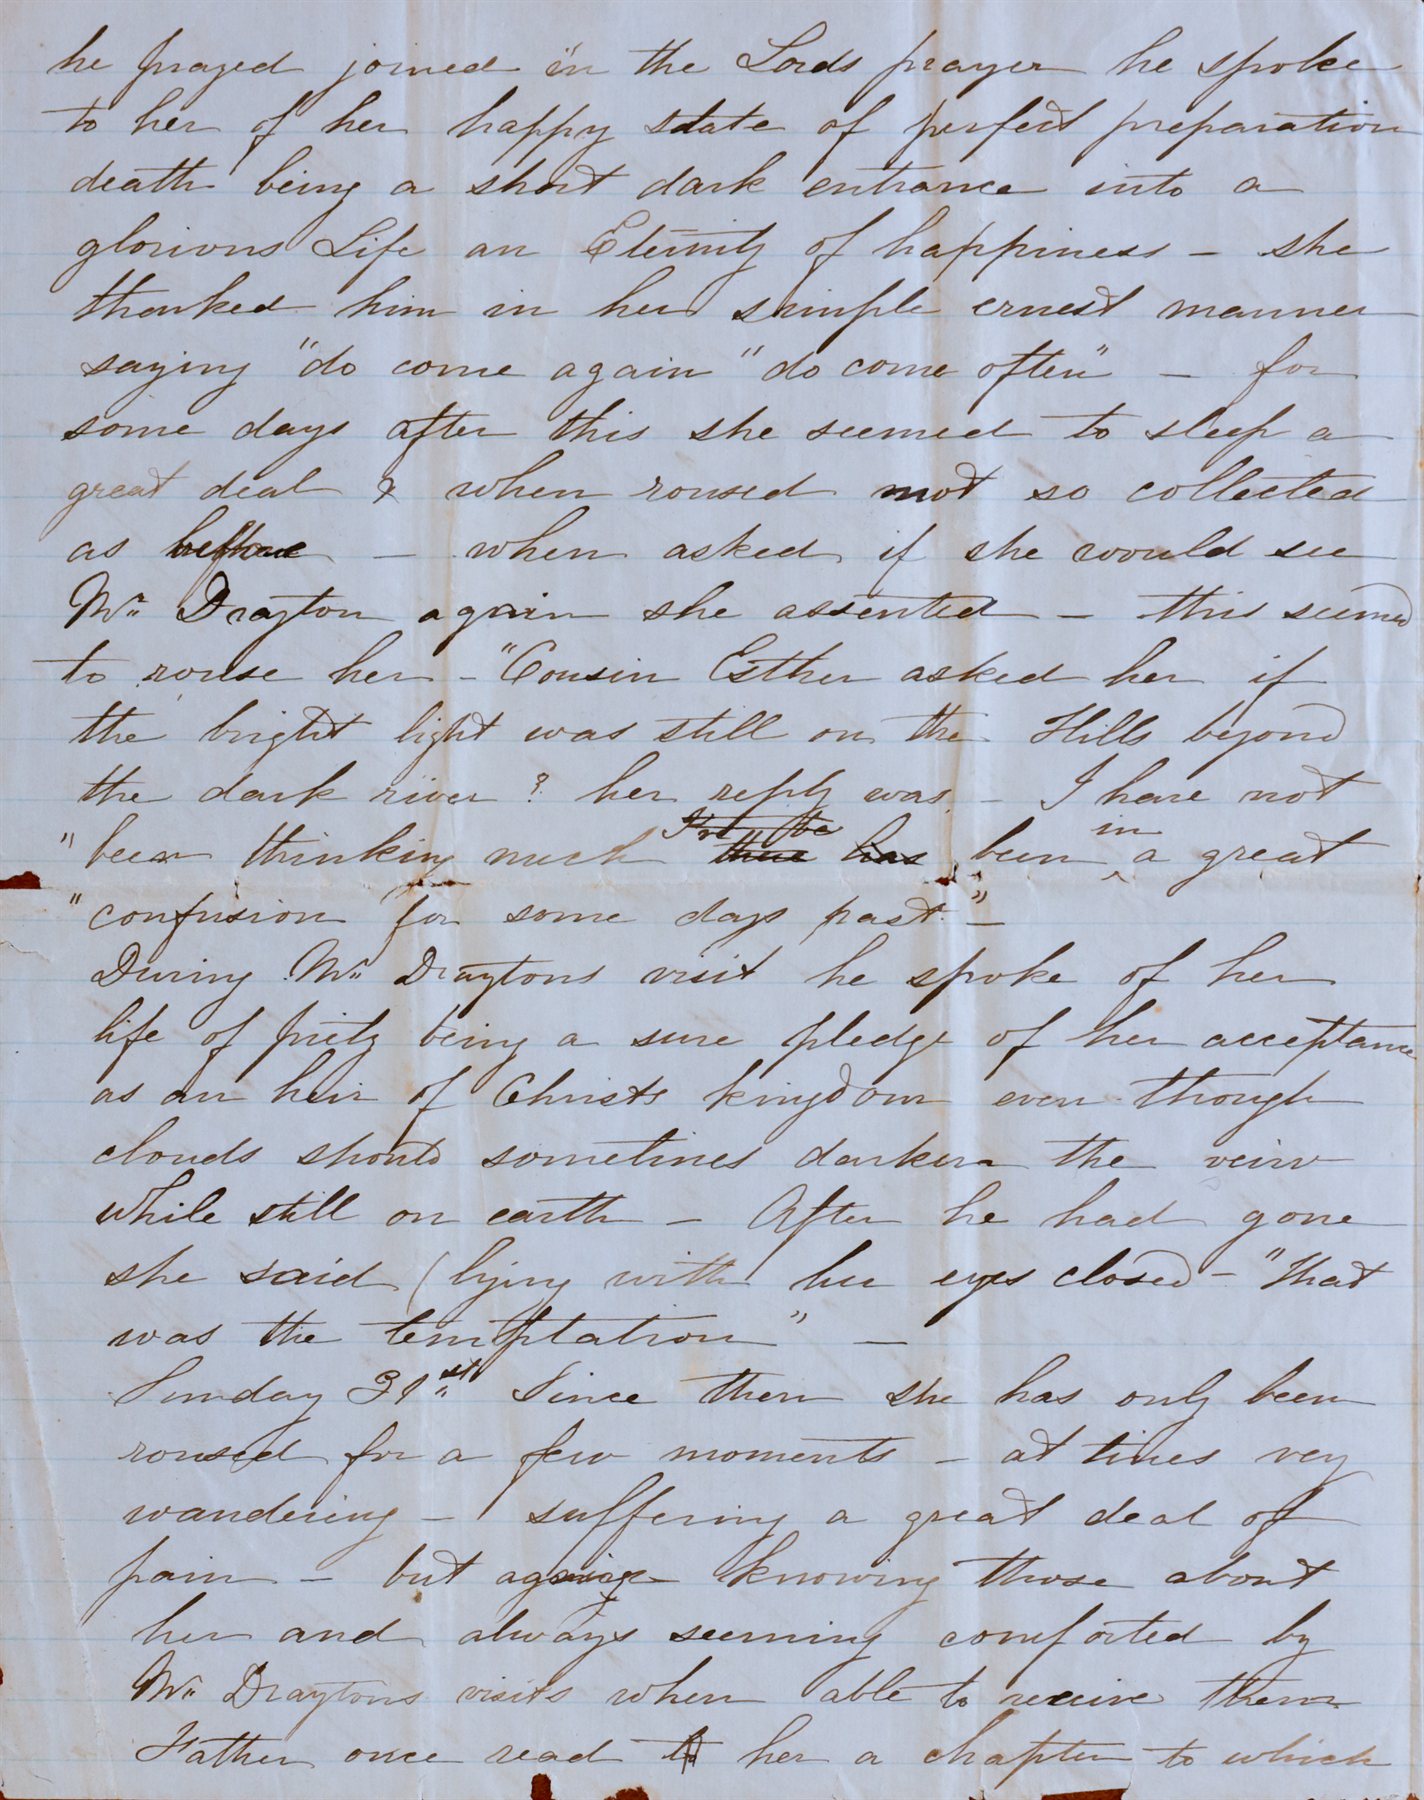 he prayed joined in the Lords prayer he spoke
to her of her happy state of perfect preparation
death being a short dark entrance into a
glorious Life an Eternity of happiness – she
thanked him in her simple ernest manner
saying "do come again" do come often" – for
some days after this she seemed to sleep a
great deal & when roused not so collected
as before – when asked if she would see
Mr Drayton again she assented – this seemed
to rouse her – "Cousin Esther asked her if
the bright light was still on the Hills beyond
the dark river? her reply was – I have not
"been thinking much there has been in a great
"confusion for some days past." –
During Mr Draytons visit he spoke of her
life of piety being a sure pledge of her acceptance
as an heir of Christs kingdom even though
clouds should sometimes darken the veiw
while still on earth – After he had gone
she said (lying with her eyes closed – "that
was the temptation" –
Sunday 31st Since then she has only been
roused for a few moments – at times very
wandering – suffering a great deal of
pain – but again knowing those about
her and always seeming comforted by
Mr Draytons visits when able to receive them
Father once read to her a chapter to which